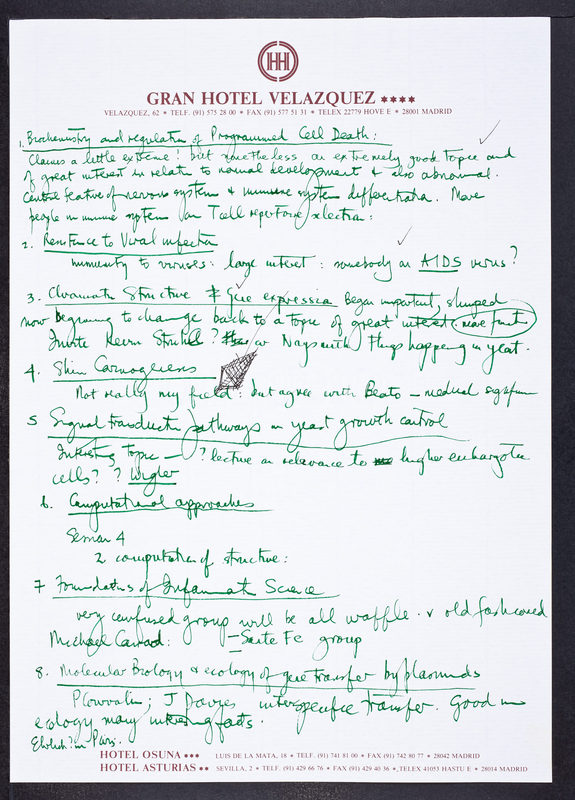 HH
GRAN HOTEL VELAZQUEZ ★★★★
VELAZQUEZ, 62 • TELF. (91) 575 28 00 • FAX (91) 577 51 31 • TELEX 22779 HOVE E • 28001 MADRID
1. Biochemistry and regulation of Programmed Cell Death:
Claims a little extreme! but nonetheless an extremely good topic and
of great interest in relation to normal development & also abnormal.
Central feature of nervous system & immune system differentiation. More
people in immune system on T cell repertoire selection:
2. Resistance to Viral infection
immunity to viruses: large interest: somebody on AIDS virus?
3. Chromatin Structure & Gene expression Began important, slumped
now beginning to change back to a topic of great interest. more
Invite Kevin Struhl? or Naysmith Things happening in yeast.
4. Skin Carcinogenesis
Not really my field: but agree with Beato – medical
5 Signal transduction pathways in yeast growth control
Interesting topic – ? lecture on relevance to higher eukaryotic
cells? ? Wigler
6. Computational approaches
Seminar 4
2 computation of structure:
7 Foundations of Information Science
very confused group will be all waffle. & old fashioned
Michael Conrad: – Sante Fe group
8. Molecular Biology & ecology of gene transfer by plasmids
; J Davies interspecific transfer. Good in
ecology many interesting facts.
Ehrlich? in Paris.
HOTEL OSUNA ★★★ LUIS DE LA MATA, 18 • TELF. (91) 741 81 00 • FAX (91) 742 80 77 • 28042 MADRID
HOTEL ASTURIAS ★★ SEVILLA, 2 • TELF. (91) 429 66 76 • FAX (91) 429 40 36 • TELEX 41053 HASTU E • 28014 MADRID